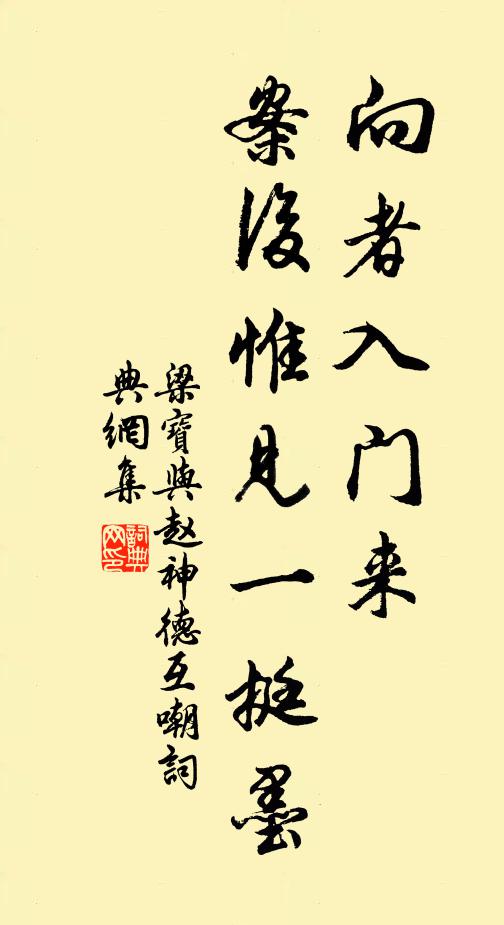 向者入门来
案後惟见一挺墨
梁寶與赵神德互嘲詞
典網集
詞典
网印